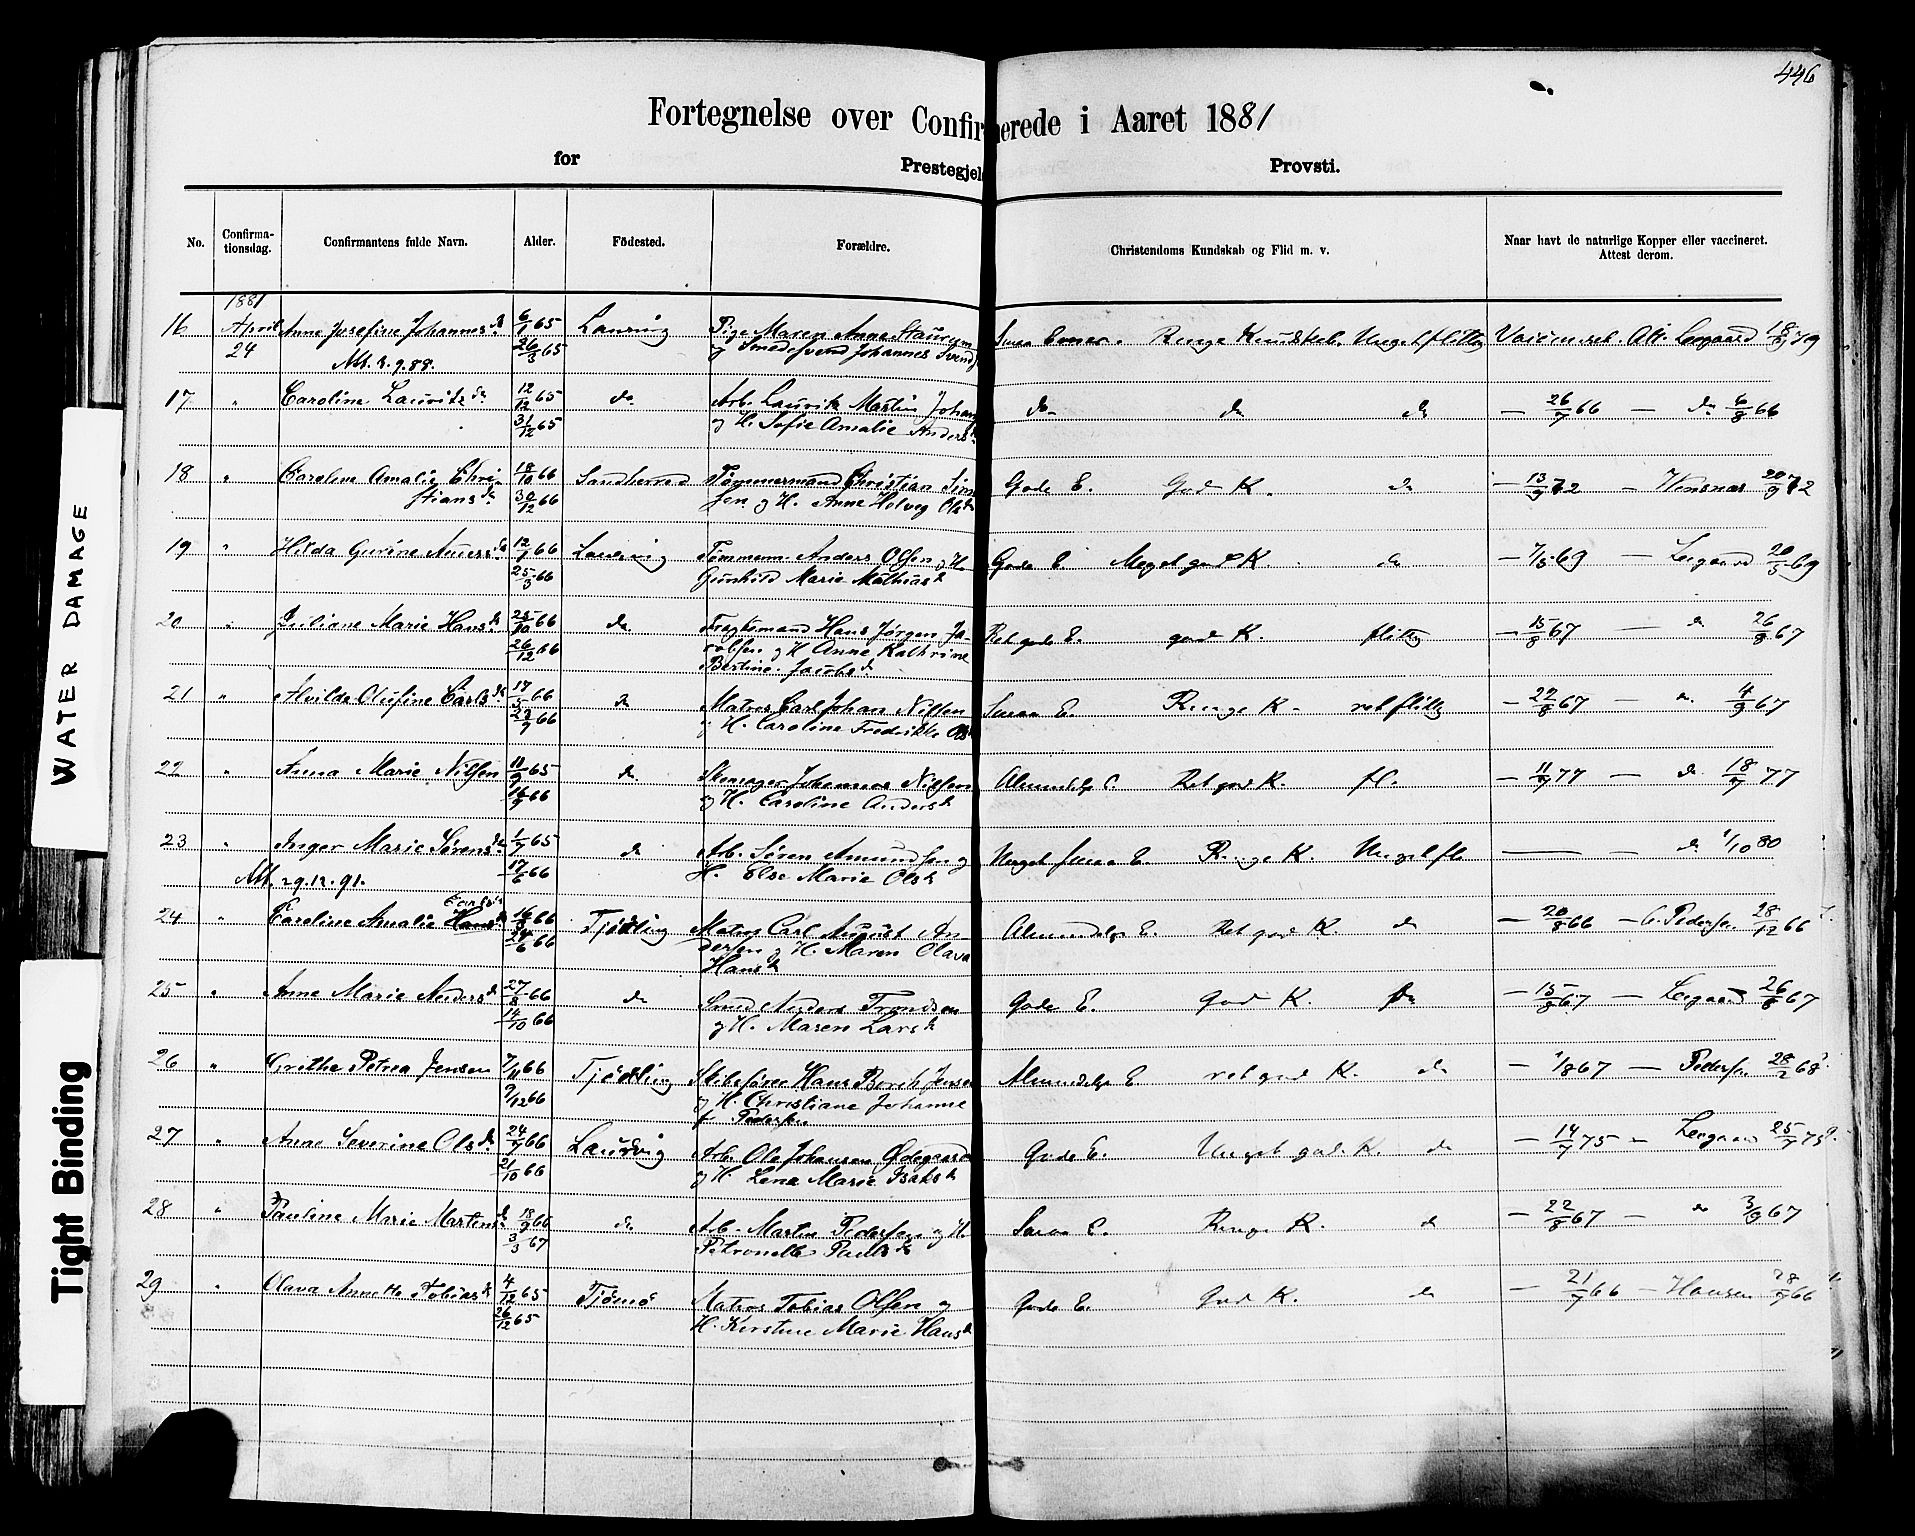 446
Fortegnelse over Confirmerede i Aaret 1881
for Prestegjeld Provsti.
No. Confirma-tionsdag. Confirmantens fulde Navn. Alder. Födested. Forældre. Christendoms Kundskab og Flid m. v. Naar havt de naturlige Kopper eller vaccineret. Attest derom.
1881
16 April Anne Josefine Johannesd 6/1 65 Laurvig Pige Maren Anne Ringe Kundskab
24 26/3 65 og Smedesvend Johannes
Att. 3.9.88.
17 " Caroline Lauritzd 12/12 65 do Arb. Lauritz Martin Johan do do do — 26/7 66 — do 6/8 66
31/12 65 og H. Sofie Amalie Andersd
18 " Caroline Amalie Chri- 18/10 66 Sandherred Tömmermand Christian Sim Gode E. God K. do — 13/9 72 — 20/9 72
stiansd 30/12 66 sen og H. Anne Helvig Olsd
19 " Hilda Gurine Andersd 12/1 66 Laurvig Tömmerm. Anders Olsen og H Gode E Meget god K. do — 7/5 69 — Leegaard 20/5 69
25/3 66 Gunhild Marie Mathiasd
20 " Juliane Marie Hansd 25/10 66 do Fragtemand Hans Jørgen Ja- Ret gode E. god K. flittig — 15/8 67 — do 26/8 67
26/12 66 cobsen og H Anne Kathrine
Bertine Jacobsd
21 " Alvilde Olufine Carlsd 17/5 66 do Matros Carl Johan Nilsen Smaa E. Ringe K. ret flittig — 22/8 67 — " 4/9 67
23/9 66 og H. Caroline Fredrikke Olsd
22 " Anna Marie Nilsen 11/9 65 do Skomager Johannes Nilsen Almindelige E. Ret god K. fl. — 11/7 77 — do 18/7 77
og H. Caroline Andersd
23 " Inger Marie Sørensd 1/7 65 do Arb. Sören Amundsen og Meget smaa E Ringe K. Meget fl — — do 1/10 80
Att. 29.12.91. 17/6 66 H. Else Marie Olsd
Carlsd
24 " Caroline Amalie Hansd Tjödling Matros Carl August An- Almindelige E. Ret god K do — 20/8 66 — C. Pedersen 28/12 66
24/6 66 dersen og H. Maren Olava
Hansd
25 " Anne Marie Andersd 27/8 66 do Smed Anders Trondsen Gode E. God K. do — 15/8 67 — Leegaard 26/8 67
14/10 66 og H. Maren Larsd
26 " Grethe Petrea Jensen 7/11 66 Tjödling Skibsförer Hans Borch Jensen Almindelige E ret god K. do — 1/8 67 — Pedersen 28/2 68
9/12 66 og H. Christiane Johanne
f. Pedersen
27 " Anne Severine Olsd 24/9 66 Laurvig Arb. Ole Johansen Ødegaarden Gode E. Meget god K. do — 14/7 75 — Leegaard 25/7 75
21/10 66 og H. Lena Marie Isaksd
28 " Pauline Marie Martinsd 18/9 66 do Arb. Martin Pedersen og H Smaa E. Ringe K. do — 22/8 67 — do 3/9 67
3/3 67 Petronelle Paulsd
29 " Olava Annette Tobiasd 4/12 65 Tjömö Matros Tobias Olsen og Gode E. God K. do — 21/7 66 — Hansen 28/7 66
26/12 65 H. Kirstine Marie Hansd
WATER DAMAGE
Tight Binding